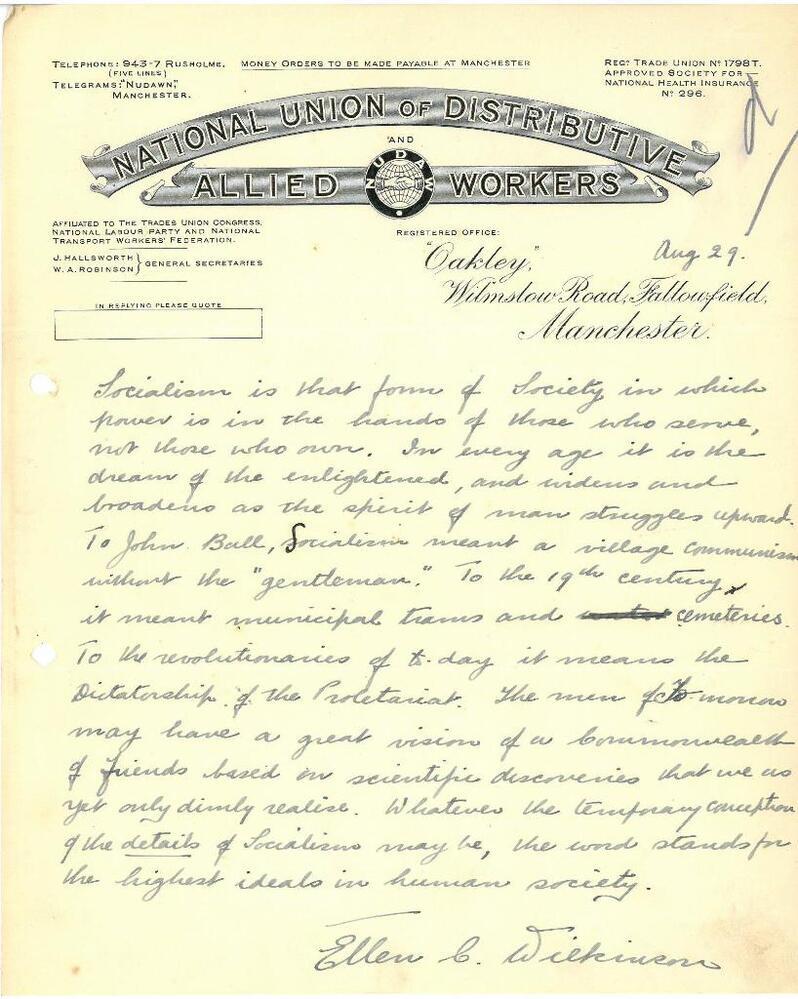 TELEPHONE: 943-7 RUSHOLME.
(FIVE LINES)
TELEGRAMS: "NUDAWN,"
MANCHESTER.
MONEY ORDERS TO BE MADE PAYABLE AT MANCHESTER
REGD TRADE UNION No 1798T.
APPROVED SOCIETY FOR
NATIONAL HEALTH INSURANCE
No 296.
NATIONAL UNION OF DISTRIBUTIVE
AND
ALLIED WORKERS
NUDAW
AFFILIATED TO THE TRADES UNION CONGRESS,
NATIONAL LABOUR PARTY AND NATIONAL
TRANSPORT WORKERS' FEDERATION.
J. HALLSWORTH
W. A. ROBINSON } GENERAL SECRETARIES
IN REPLYING PLEASE QUOTE
REGISTERED OFFICE:
"Oakley",
Wilmslow Road, Fallowfield,
Manchester.
Aug 29.
Socialism is that form of Society in which
power is in the hands of those who serve,
not those who own. In every age it is the
dream of the enlightened, and widens and
broadens as the spirit of man struggles upward.
To John Ball, Socialism meant a village communism
without the "gentleman." To the 19th century
it meant municipal trams and cemeteries.
To the revolutionaries of to-day it means the
Dictatorship of the Proletariat. The men of to-morrow
may have a great vision of a Commonwealth
of friends based on scientific discoveries that we as
yet only dimly realise. Whatever the temporary conception
of the details of Socialism may be, the word stands for
the highest ideals in human society.
Ellen C. Wilkinson